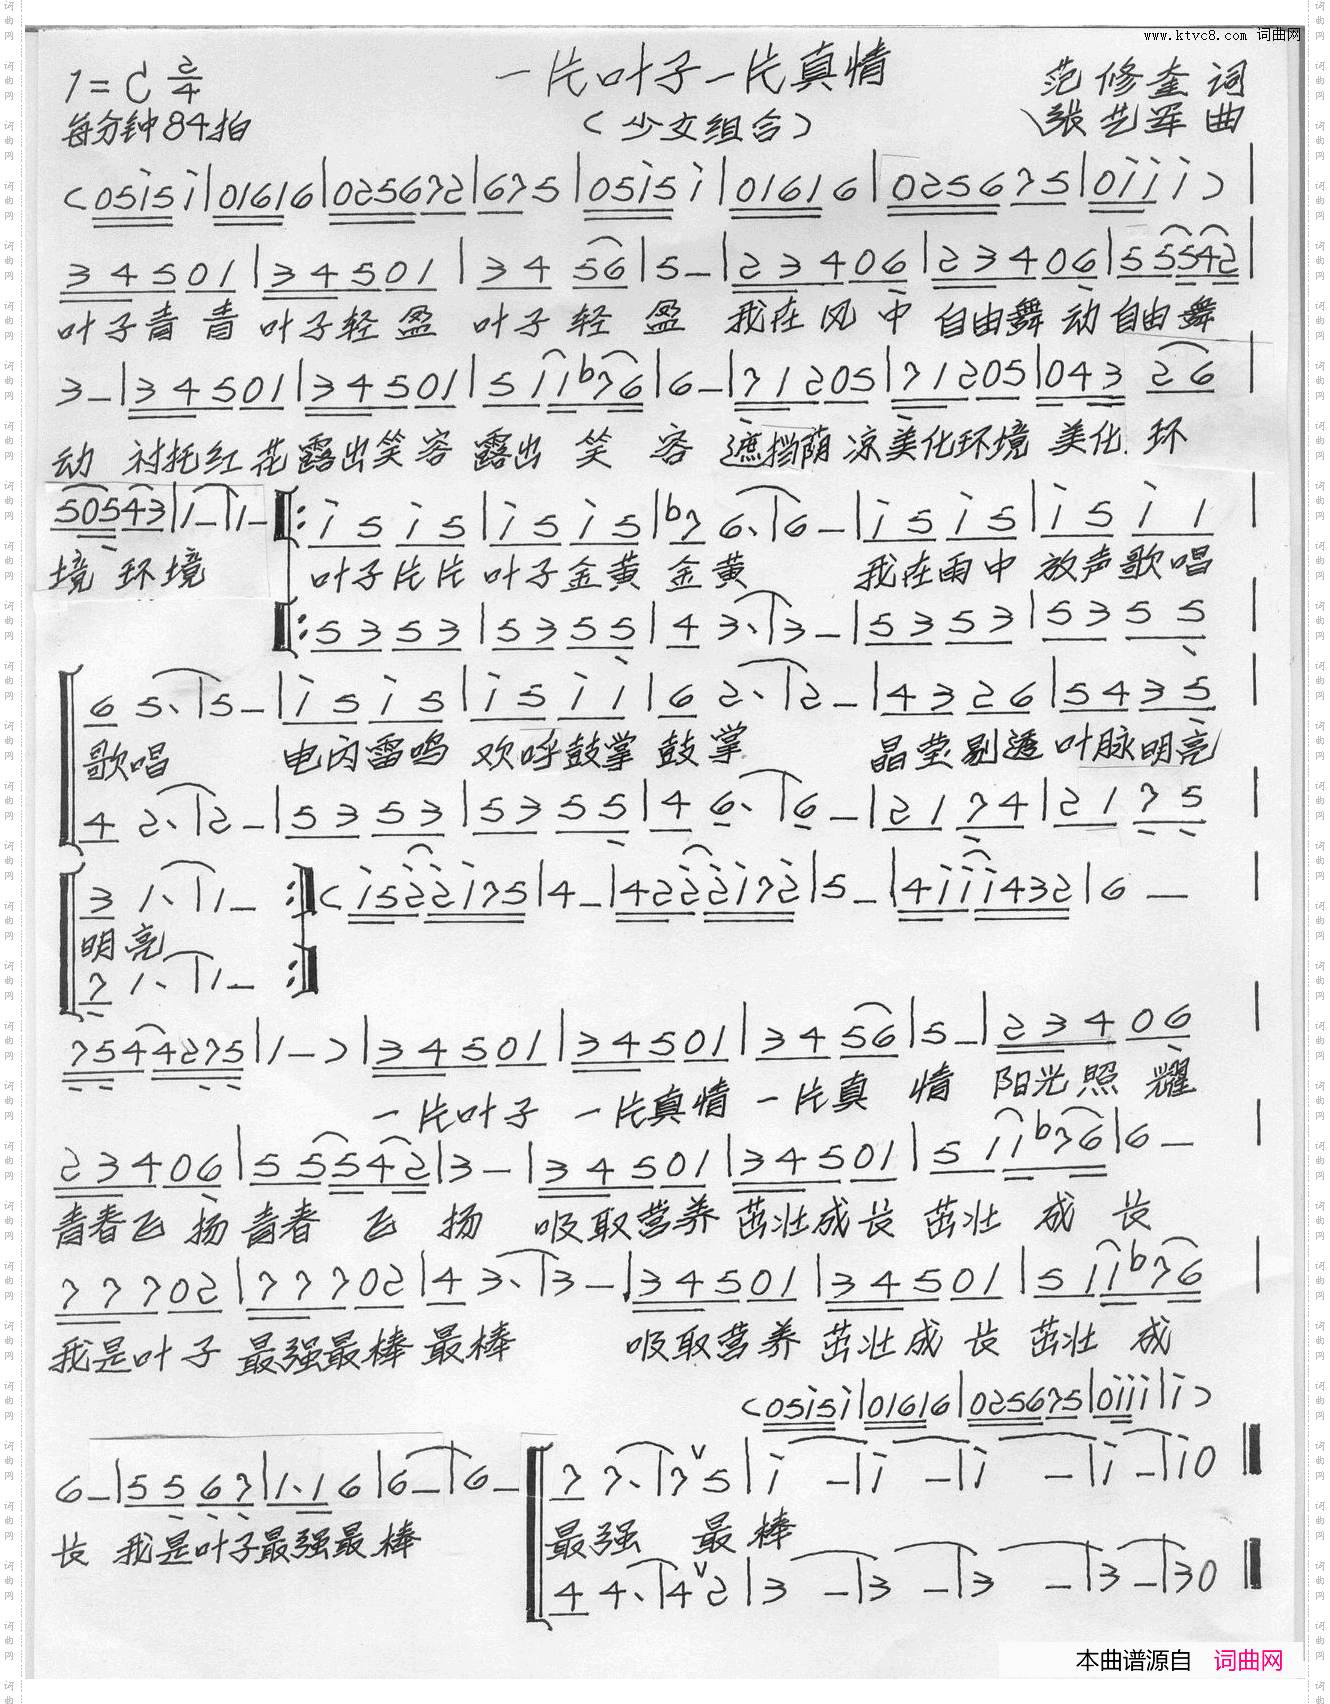 www.ktvc8.com 词曲网
一片叶子一片真情
1=C 2/4
范修奎 词
每分钟84拍
(少女组合)
张艺军 曲
(05i5i|01616|025672|675|05i5i|01616|025675|0iii)|
34501|34501|3456|5-|23406|23406|55542|
叶子青青叶子轻盈 叶子轻盈 我在风中 自由舞动自由舞
3-|34501|34501|511b76|6-|71205|71205|043 26|
动 衬托红花露出笑容 露出笑容 遮挡荫凉美化环境 美化环
50543|1-|1-|:i5i5|i5i5|b76.|6-|i5i5|i5i1|
境 环境 叶子片片 叶子金黄 金黄 我在雨中 放声歌唱
|:5353|5355|43.|3-|5353|5355|
65.|5-|i5i5|i5ii|62.|2-|4326|5435|
歌唱 电闪雷鸣 欢呼鼓掌 鼓掌 晶莹剔透 叶脉明亮
42.|2-|5353|5355|46.|6-|2174|2175|
31.|1-:|(i522i75|4-|4222i72|5-|4iii432|6-|
明亮
71.|1-:|
7544275|1-)|34501|34501|3456|5-|23406|
一片叶子 一片真情 一片真情 阳光照耀
23406|55542|3-|34501|34501|511b76|6-
青春飞扬 青春飞扬 吸取营养 茁壮成长 茁壮成长
77702|77702|43.|3-|34501|34501|511b76|
我是叶子 最强最棒 最棒 吸取营养 茁壮成长 茁壮成
(05i5i|01616|025675|0iii|i)
6-|5567|1.16|6-|6-|77.|7v5|i-|i-|i-|i-|i0‖
长 我是叶子最强最棒 最强 最棒
44.|4v2|3-|3-|3-|3-|30‖
本曲谱源自 词曲网